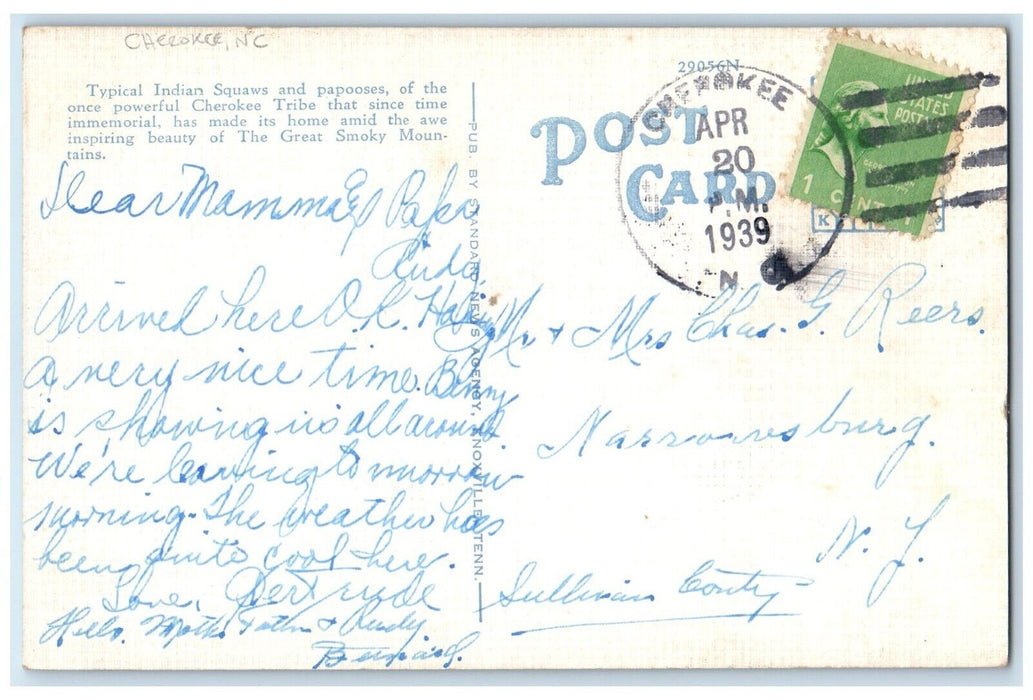 CHEROKEE, NC
Typical Indian Squaws and papooses, of the
once powerful Cherokee Tribe that since time
immemorial, has made its home amid the awe
inspiring beauty of The Great Smoky Moun-
tains.
Dear Mamma & Papa
& Rudy,
Arrived here O.K. Having
a very nice time. Benny
is showing us all around.
We're leaving tomorrow
morning. The weather has
been quite cool here.
Love, Gertrude
Hello Mother Father & Rudy
Bernard.
PUB. BY STANDARD NEWS AGENCY, KNOXVILLE, TENN.
29056N
POST
CARD
CHEROKEE
APR
20
P.M.
1939
N.
UNITED
STATES
POSTAGE
1 CENT
Mr + Mrs Chas. G. Reers.
Narrowsburg.
N. Y.
Sullivan Conty